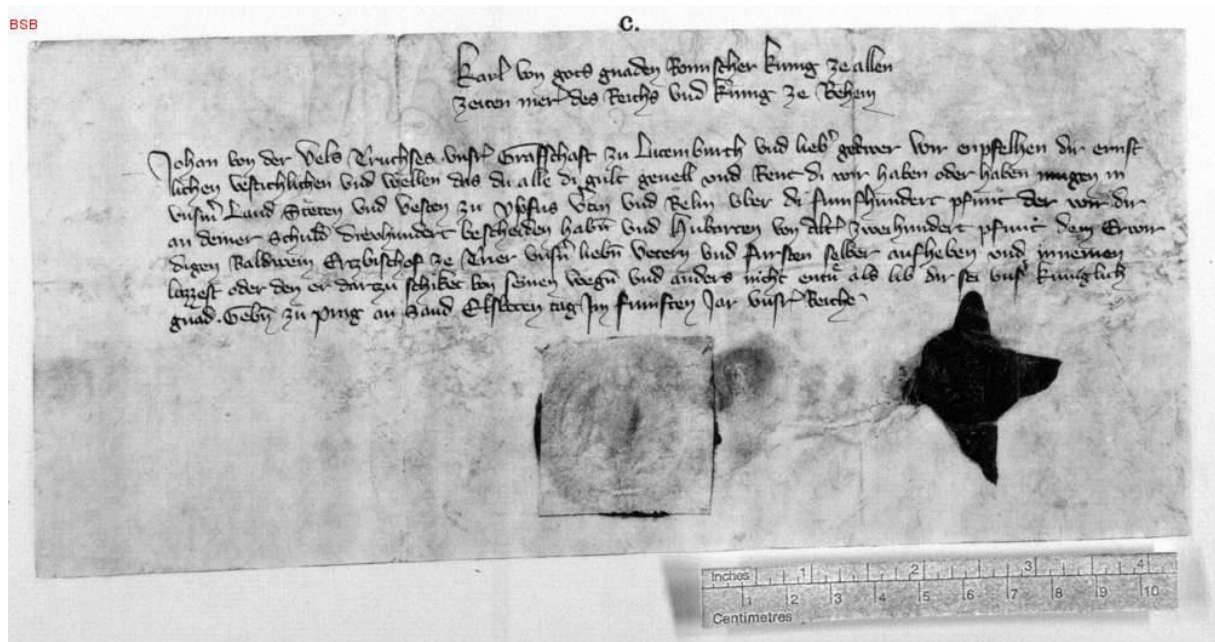 BSB
C.
Karl von gots gnaden Romischer kunig ze allen
zeiten merer des Reichs vnd kunig ze Behem
Johan von der Vels Truchses vnsrr Grafschaft zu Lucemburch vnd lieber getrwer wir enpfelhen dir ernst
lichen vestichlichen vnd wellen das du alle di gult gevell vnd Rent di wir haben oder haben mugen in
vnsern Land Steten vnd vesten zu vnd uber di funfhundert pfunt der wir dir
an deiner schuld drevhundert bescheiden habn vnd von zweihundert pfunt dem Erwir
digen Baldwein Ertzbischof ze Trier vnsern liebn Vetern vnd fursten selber aufheben vnd innemen
lazzest oder den er darzu schiket von seinen wegn vnd anders nicht entu als lib dir sei vnser kuniglich
gnad. Gebn zu an Sand tag Im funften Jar vnsrr Reiche
Inches 1 2 3 4
1 2 3 4 5 6 7 8 9 10
Centimetres